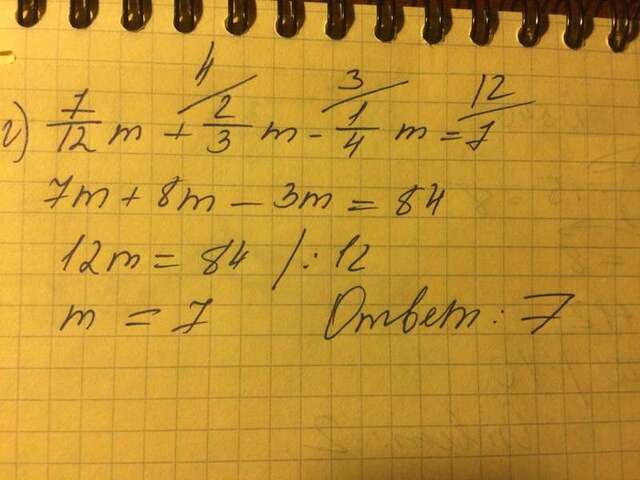 4 3 12
г) 7/12 m + 2/3 m - 1/4 m = 7
7m + 8m - 3m = 84
12m = 84 /: 12
m = 7 Ответ: 7